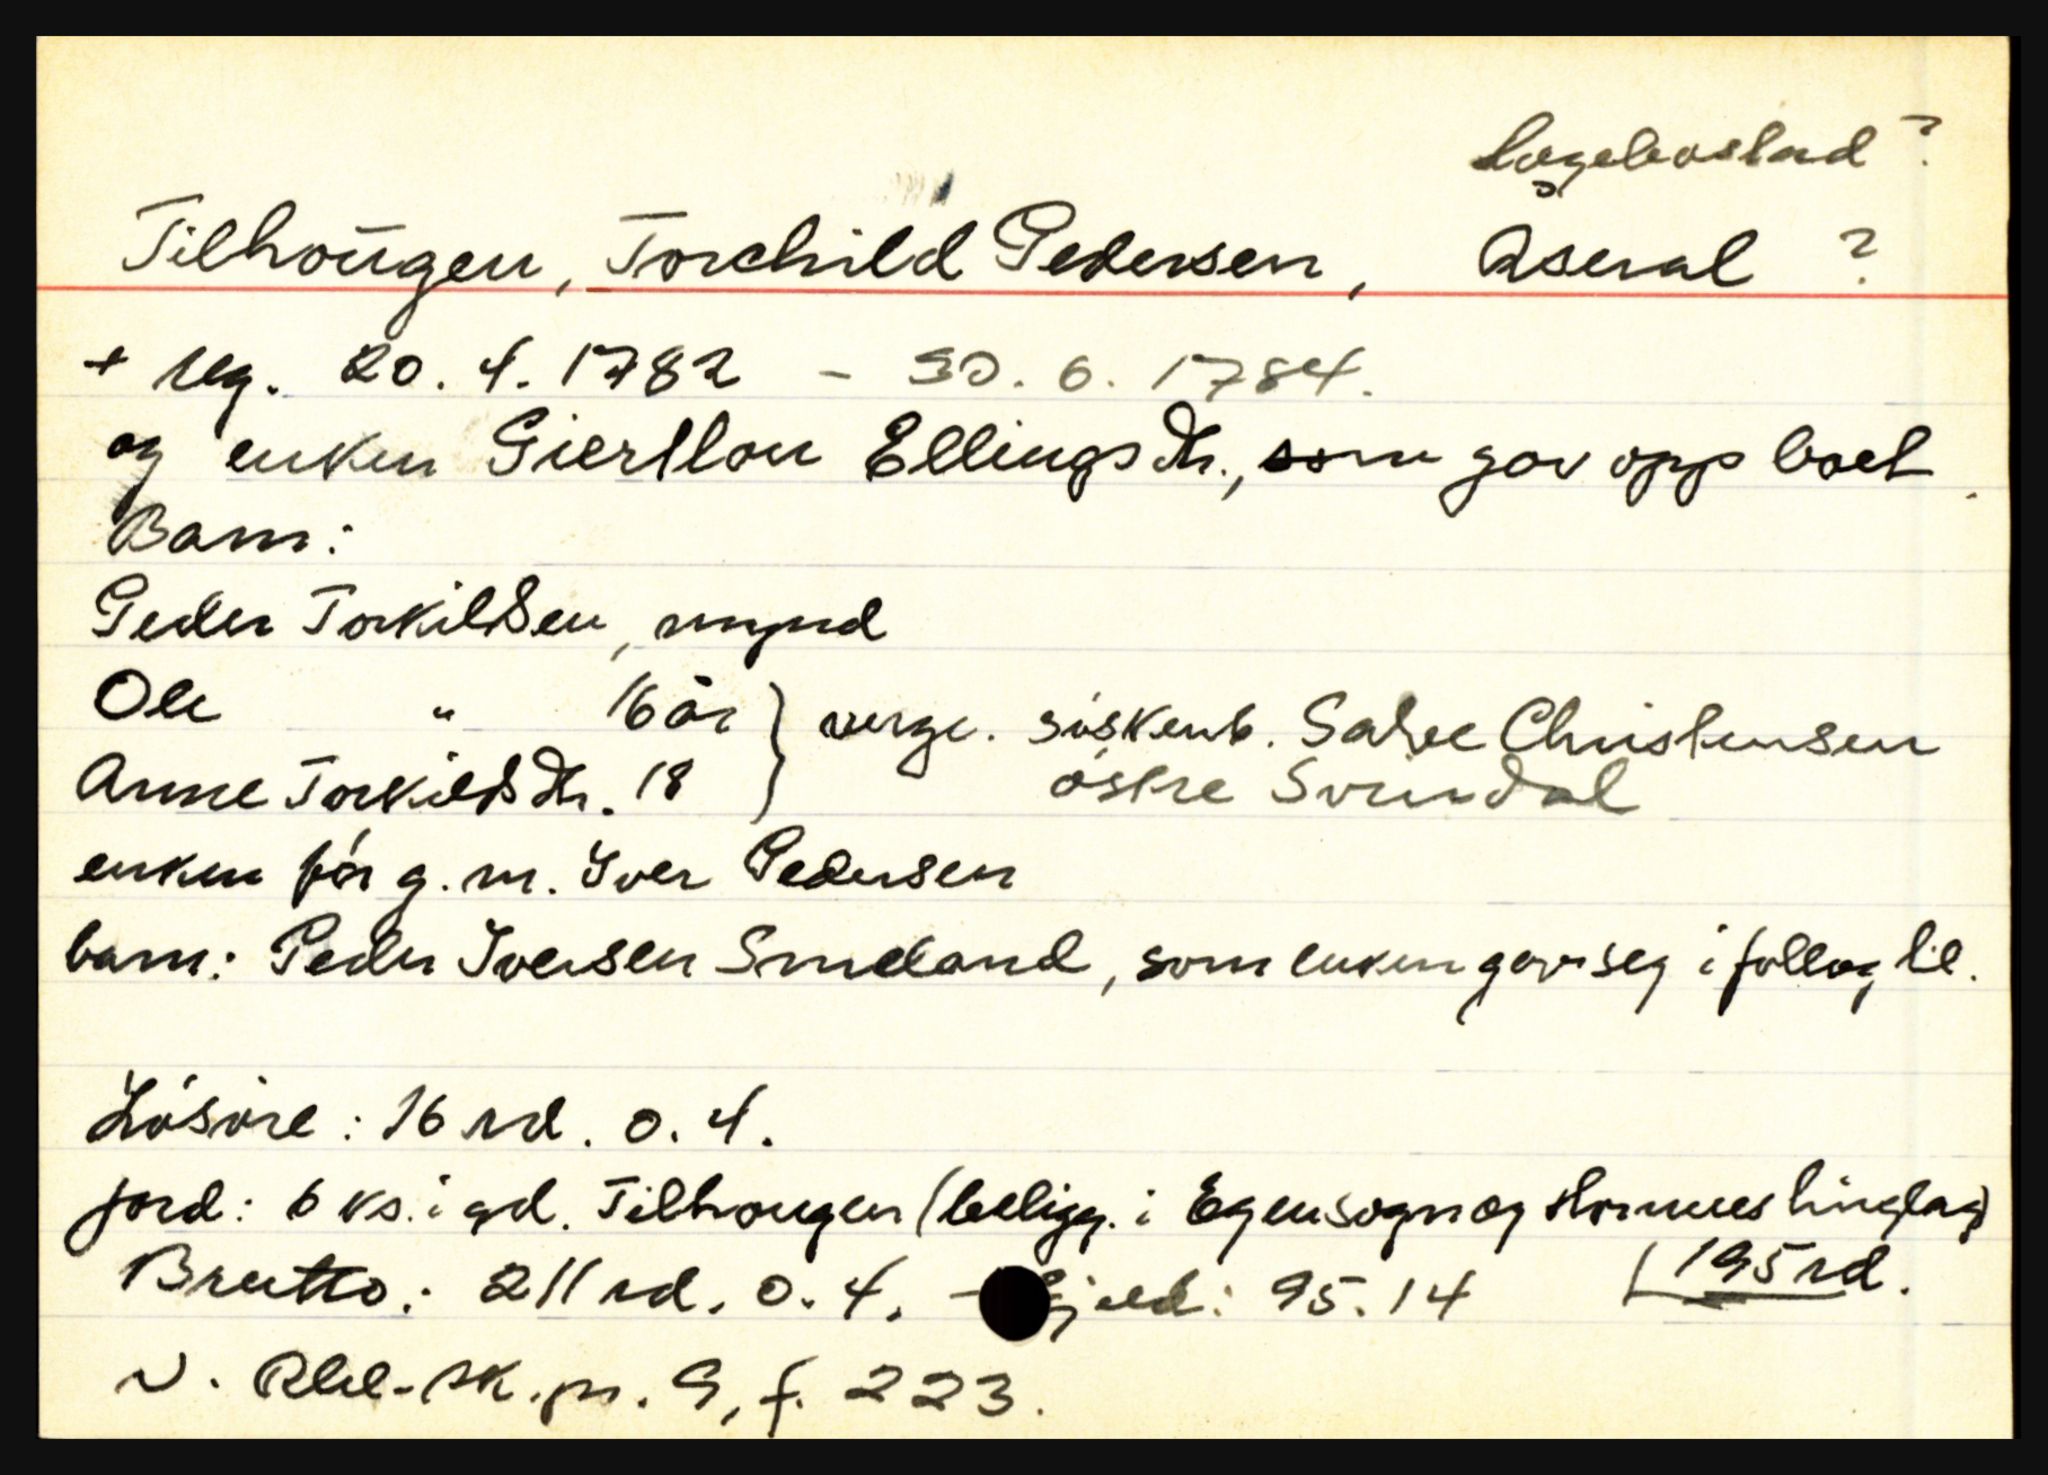 Hægebostad ?
Tilhoŭgen, Torchild Pedersen, Åseral ?
+ reg. 20.4.1782 - 30.6.1784.
og enken Giertlou Ellingsdtr., som gav opp boet.
Barn:
Peder Torkildsen, mynd
Ole " 16 år } verge. söskenb. Salve Christensen
Anne Torkildsdtr. 18 } östre Svindal
enken för g.m. Iver Pedersen
barn: Peder Iversen Smeland, som enken gav seg i follog til.
Lösöre: 16 rd. 0.4.
jord: 6 ks. i gd. Tilhougen (beligg. i Egensogn og Hornnes tinglag)
Brutto: 211 rd. 0.4. - Gjeld: 95.14 195 rd.
N. Rbd-sk.pr. 9, f. 223.